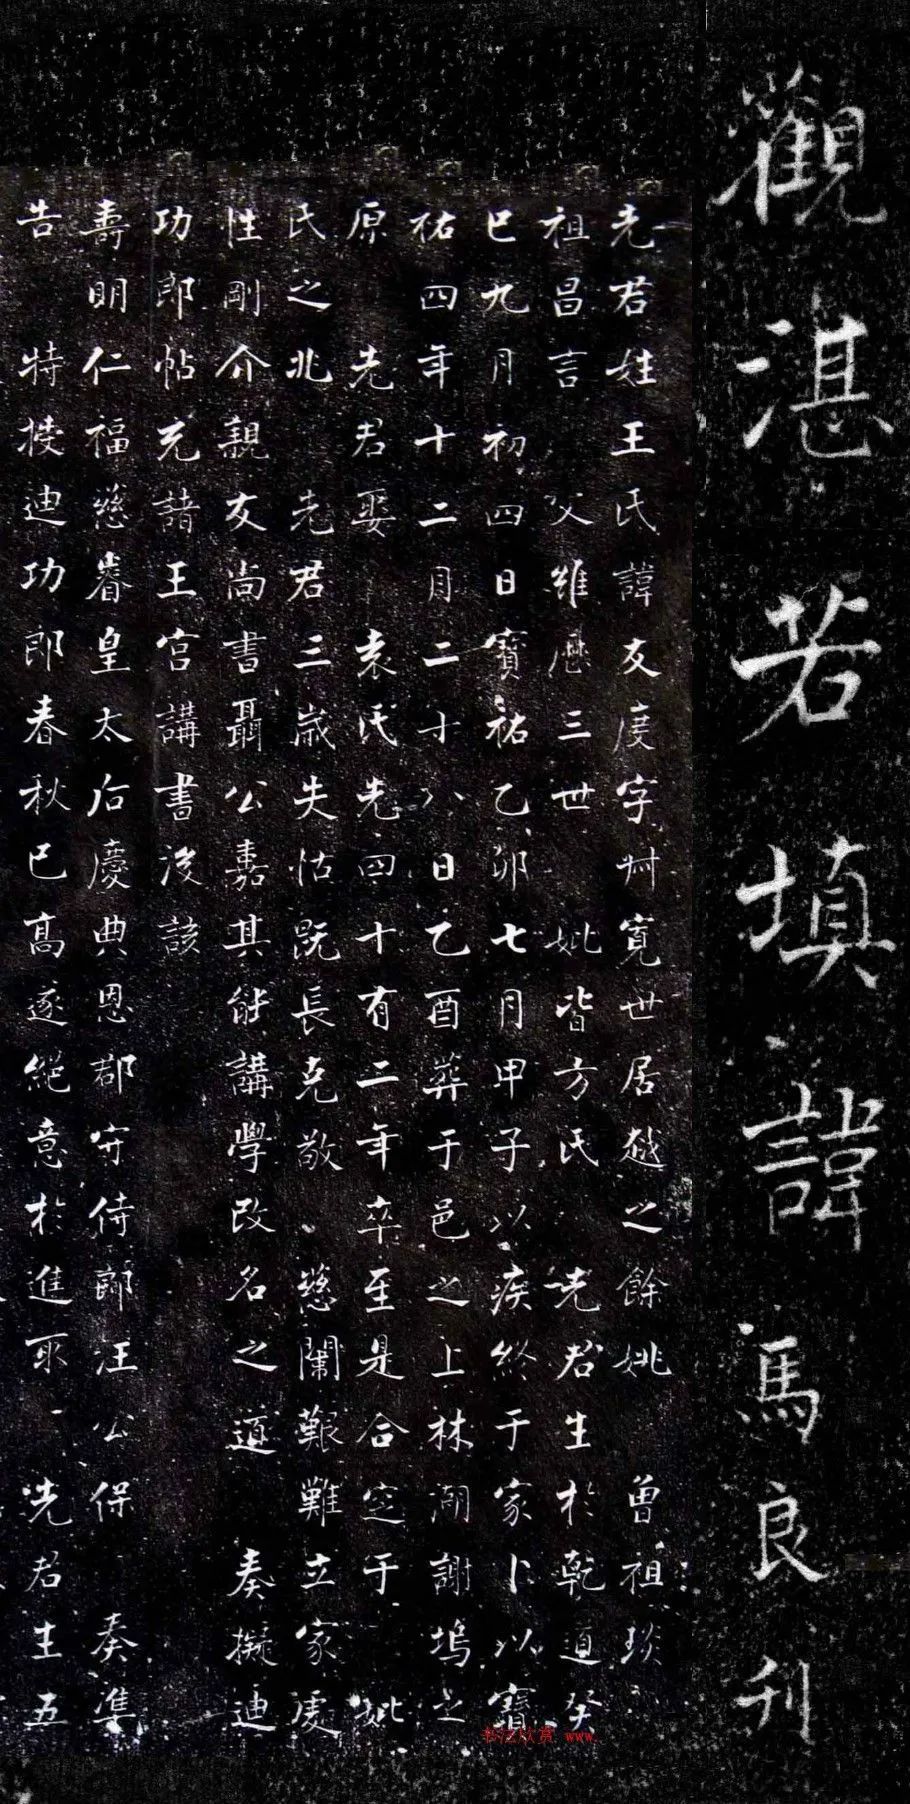 觀湛若填諱馬良刊
先君姓王氏諱友度字艸寬世居越之餘姚 曾祖
祖昌言 父維歷三世 妣皆方氏 先君生於乾道癸
巳九月初四日寶祐乙卯七月甲子以疾終于家卜以寶
祐四年十二月二十八日乙酉葬于邑之上林湖謝塢之
原 先君娶 袁氏先四十有二年卒至是合窆于 妣
氏之北 先君三歲失怙既長克敬 慈闈艱難立家處
性剛介親友尚書聶公嘉其能講學改名之道 奏擬迪
功郎帖充諸王宮講書後該
壽明仁福慈睿皇太后慶典恩郡守侍郎汪公保 奏準
告 特授迪功郎春秋已高遂絕意於進取 先君生五
书法欣赏 www.